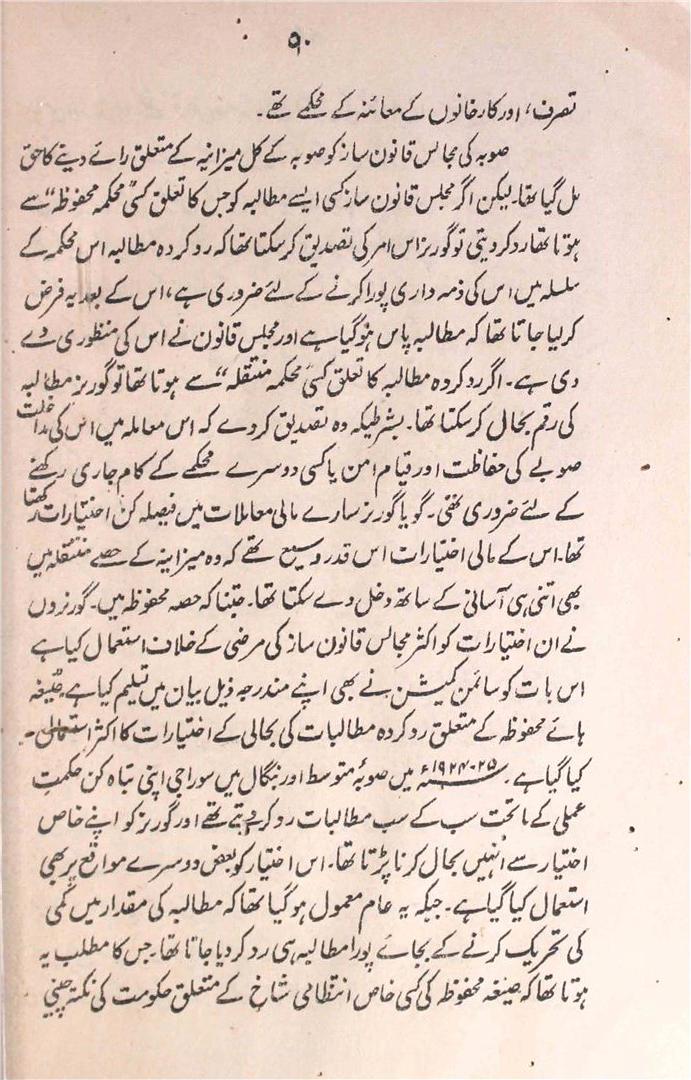 ۹۰
تصرف، اور کارخانوں کے معائنہ کے محکمے تھے۔
صوبہ کی مجالس قانون ساز کو صوبہ کے کل میزانیہ کے متعلق رائے دینے کا حق
مل گیا تھا۔ لیکن اگر مجلس قانون ساز کسی ایسے مطالبہ کو جس کا تعلق کسی ”محکمہ محفوظہ“ سے
ہوتا تھا رد کر دیتی تو گورنر اس امر کی تصدیق کر سکتا تھا کہ رد کردہ مطالبہ اس محکمہ کے
سلسلہ میں اس کی ذمہ داری پورا کرنے کے لئے ضروری ہے، اس کے بعد یہ فرض
کر لیا جاتا تھا کہ مطالبہ پاس ہو گیا ہے اور مجلس قانون نے اس کی منظوری دے
دی ہے۔ اگر رد کردہ مطالبہ کا تعلق کسی ”محکمہ منتقلہ“ سے ہوتا تھا تو گورنر مطالبہ
کی رقم بحال کر سکتا تھا۔ بشرطیکہ وہ تصدیق کر دے کہ اس معاملہ میں اس کی مداخلت
صوبے کی حفاظت اور قیام امن یا کسی دوسرے محکمے کے کام جاری رکھنے
کے لئے ضروری تھی۔ گویا گورنر سارے مالی معاملات میں فیصلہ کن اختیارات رکھتا
تھا۔ اس کے مالی اختیارات اس قدر وسیع تھے کہ وہ میزانیہ کے حصے منتقلہ میں
بھی اتنی ہی آسانی کے ساتھ دخل دے سکتا تھا۔ جتنا کہ حصہ محفوظہ میں۔ گورنروں
نے ان اختیارات کو اکثر مجالس قانون ساز کی مرضی کے خلاف استعمال کیا ہے
اس بات کو سائمن کمیشن نے بھی اپنے مندرجہ ذیل بیان میں تسلیم کیا ہے ”صیغہ
ہائے محفوظہ کے متعلق رد کردہ مطالبات کی بحالی کے اختیارات کا اکثر استعمال
کیا گیا ہے۔ ۲۵-۱۹۲۴ء میں صوبۂ متوسط اور بنگال میں سوراجی اپنی تباہ کن حکمت
عملی کے ماتحت سب کے سب مطالبات رد کر دیتے تھے اور گورنر کو اپنے خاص
اختیار سے انہیں بحال کرنا پڑتا تھا۔ اس اختیار کو بعض دوسرے مواقع پر بھی
استعمال کیا گیا ہے۔ جبکہ یہ عام معمول ہو گیا تھا کہ مطالبہ کی مقدار میں کمی
کی تحریک کرنے کے بجائے پورا مطالبہ ہی رد کر دیا جاتا تھا۔ جس کا مطلب یہ
ہوتا تھا کہ صیغہ محفوظہ کی کسی خاص انتظامی شاخ کے متعلق حکومت کی نکتہ چینی